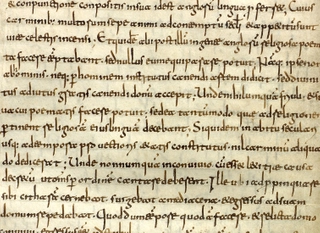 & conpunctione conpositis in sua id est anglorum lingua proferr&. Cuius
carminib; multorum saepe animi ad contemptum saeculi & app&itum sunt
uitae caelestis accensi. Et quidem & alii post illum in gente anglorum religiosa poema
ta facere temtabant sed nullus eum aequiperare potuit. Namq; ipse non
ab hominib; neq; per hominem institutus canendi artem didicit, sed diuini
tus adiutus gratis canendi donum accepit; Unde nihil umquam friuoli & super
uacui poematis facere potuit, sed ea tantummodo quae ad religionem
pertinent religiosam eius linguam decebant. Siquidem in habitu saeculari
usq; ad tempora prouectioris aetatis constitutus, nil carminum aliquan
do didicerat; Unde nonnumquam in conuiuio cum ess& laetitiae causa
decr&um ut omnes per ordinem cantare deberent. Ille ubi adpropinquare
sibi citharam cernebat surgebat a media caena & egressus ad suam
domum repedabat. Quod dum tempore quodam facer& & relicta domo